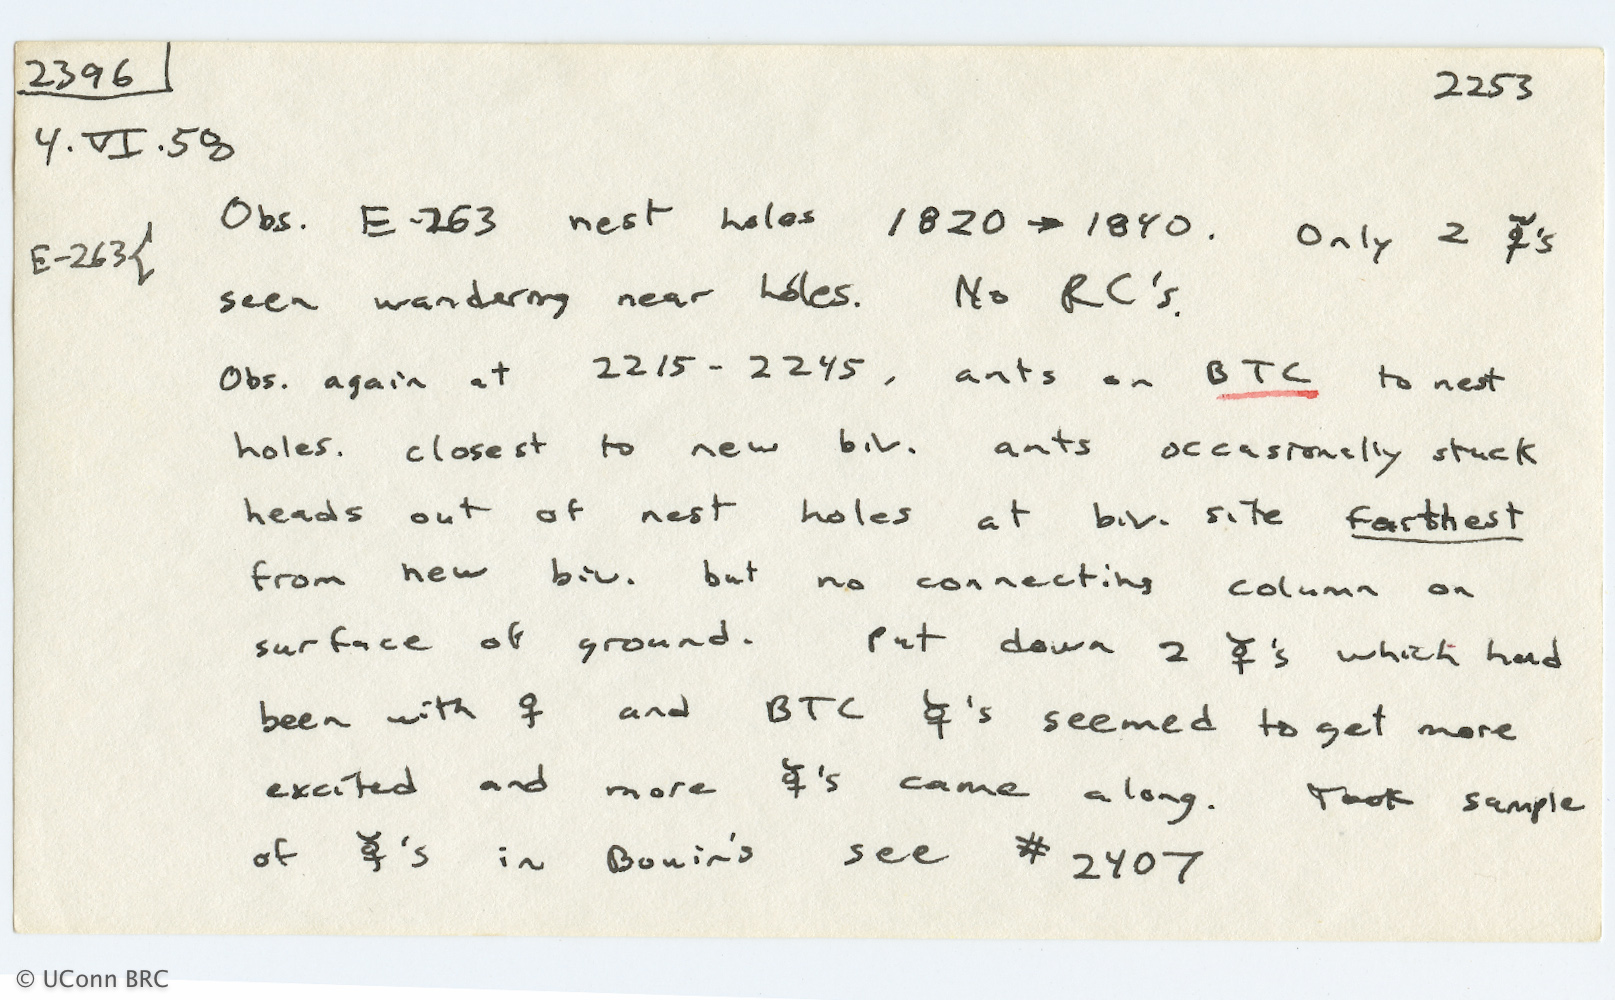 2396
2253
4.VI.58
E-263{
Obs. E-263 nest holes 1820 → 1840. Only 2 ☿'s
seen wandering near holes. No RC's.
Obs. again at 2215 - 2245, ants on BTC to nest
holes. closest to new biv. ants occasionally stuck
heads out of nest holes at biv. site farthest
from new biv. but no connecting column on
surface of ground. Put down 2 ☿'s which had
been with ♀ and BTC ☿'s seemed to get more
excited and more ☿'s came along. Took sample
of ☿'s in Bouin's see # 2407
© UConn BRC